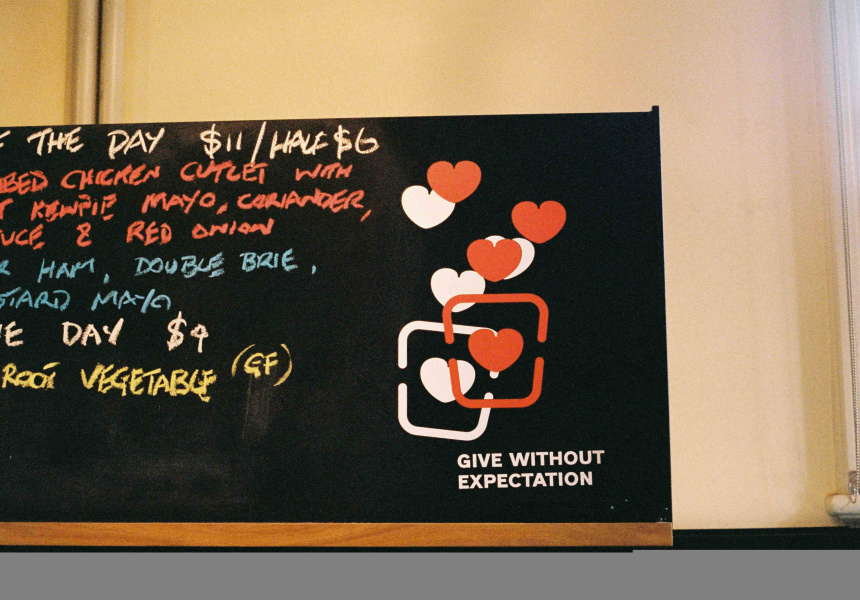 THE DAY $11/HALF $6
CHICKEN CUTLET WITH
KEWPIE MAYO, CORIANDER,
& RED ONION
HAM, DOUBLE BRIE,
MAYO
DAY $9
ROOT VEGETABLE (GF)
GIVE WITHOUT
EXPECTATION